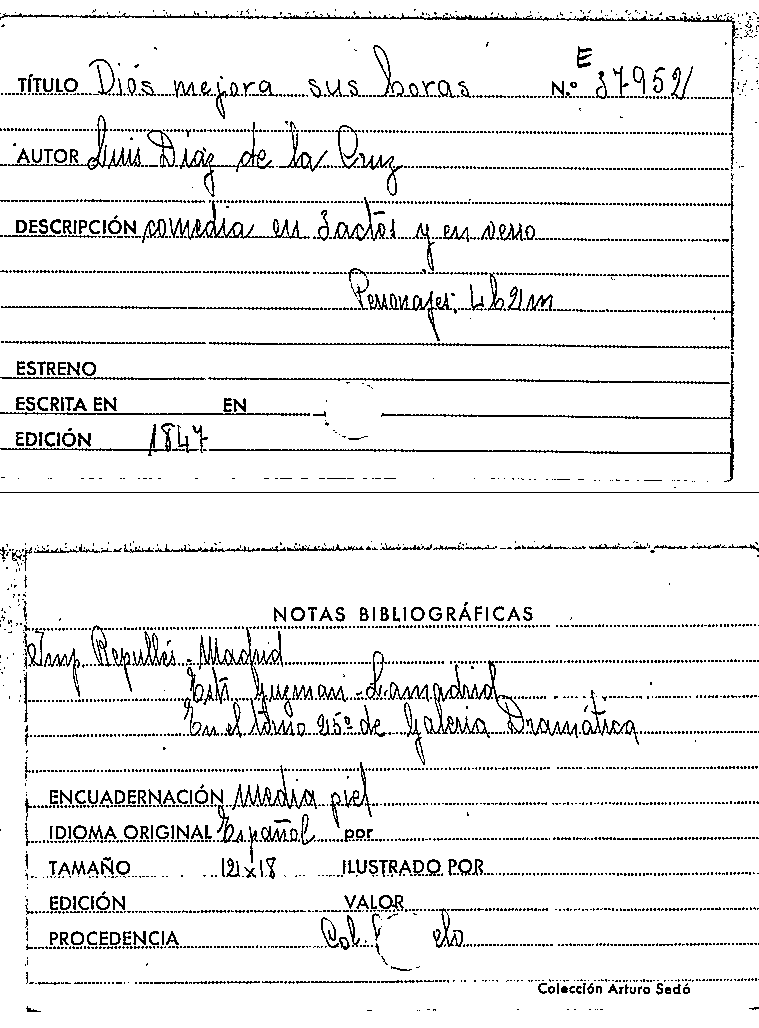 E
TÍTULO Diós mejora sus horas N.º 37952
AUTOR Luis Díaz de la Cruz
DESCRIPCIÓN comedia en 3 actos y en verso
Personajes: 4h 2m
ESTRENO
ESCRITA EN EN
EDICIÓN 1847
NOTAS BIBLIOGRÁFICAS
Imp. Repullés - Madrid
Guzman - Lamadrid
En el tomo 25º de Galeria Dramática
ENCUADERNACIÓN Media piel
IDIOMA ORIGINAL Español por
TAMAÑO 12x18 ILUSTRADO POR
EDICIÓN VALOR
PROCEDENCIA Col.
Colección Arturo Sedó